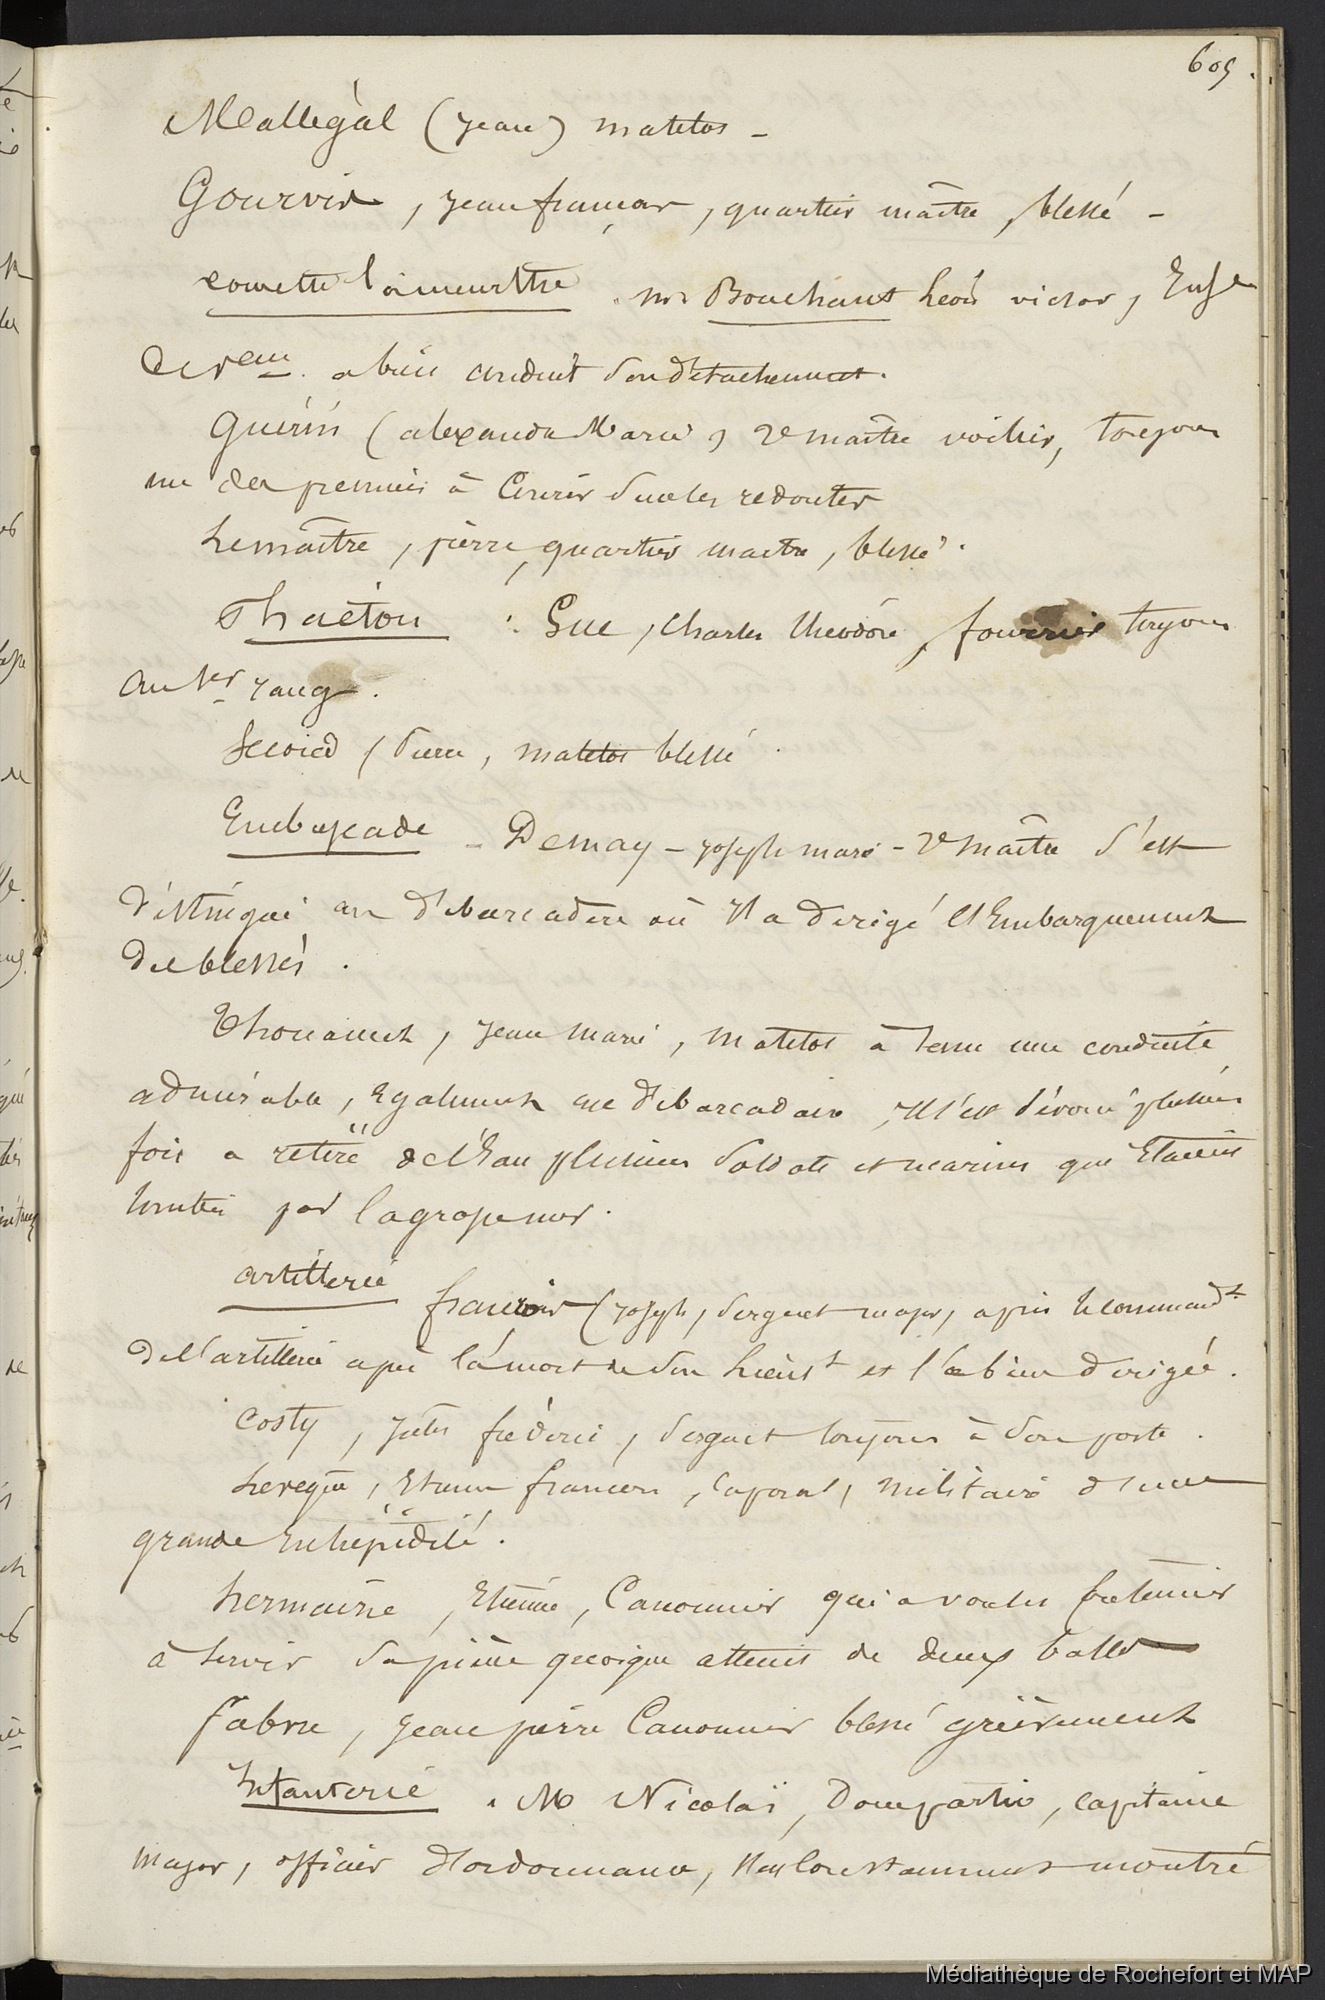 609.
Mallegàl (Jean) matelos -
Gourvid, Jean françois, quartier maître, blessé -
comette l'a'meurthe. mr Bouchaut Léon victor, Ensne
De veau. a bien conduit son détachement.
Guérin (alexandre Marie, 2e maître voilier, toujours
un des premiers à Courir sur les redoutes
Lemaître, pierre, quartier maitre, blessé.
Phaéton : Gue, Charles théodore, fourrier toujours
au 1er rang.
pierre, matelos blessé.
Embuscade - Demay - joseph marie - 2e maître s'est
distingué au débarcadère où Il a dirigé l'Embarquement
des blessés.
Thouament, Jean marie, matelot à tenu une conduite
admirable, Egalement au débarcadair, Il s'est dévoué plusieurs
fois a retiré de l'Eau plusieurs soldats et marins qui Etaient
tombés par la grosse mer.
artillerie françois (joseph, sergent major, apris le commandt
de l'artillerie apré la mort de son Lieut et l'a bien dirigée.
Costy, jules fréderic, sergent toujours à son poste.
Etienne francois, Caporal, militaire d'une
grande Intrépidité.
Lermaine, Etienne, Canonnier qui a voulu
à servir sa pièce quoique atteint de deux balles
fabre, Jean pierre Canonnier blessé griévement
Infanterie. M Nicolaï, Domparlio, capitaine
major, officier d'ordonnance, s'est Constamment montré
Médiathèque de Rochefort et MAP